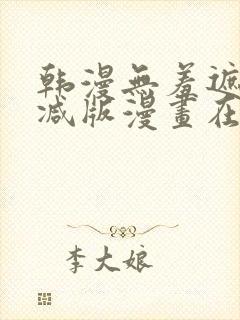 韩漫無羞遮
減版漫畫在
李大娘